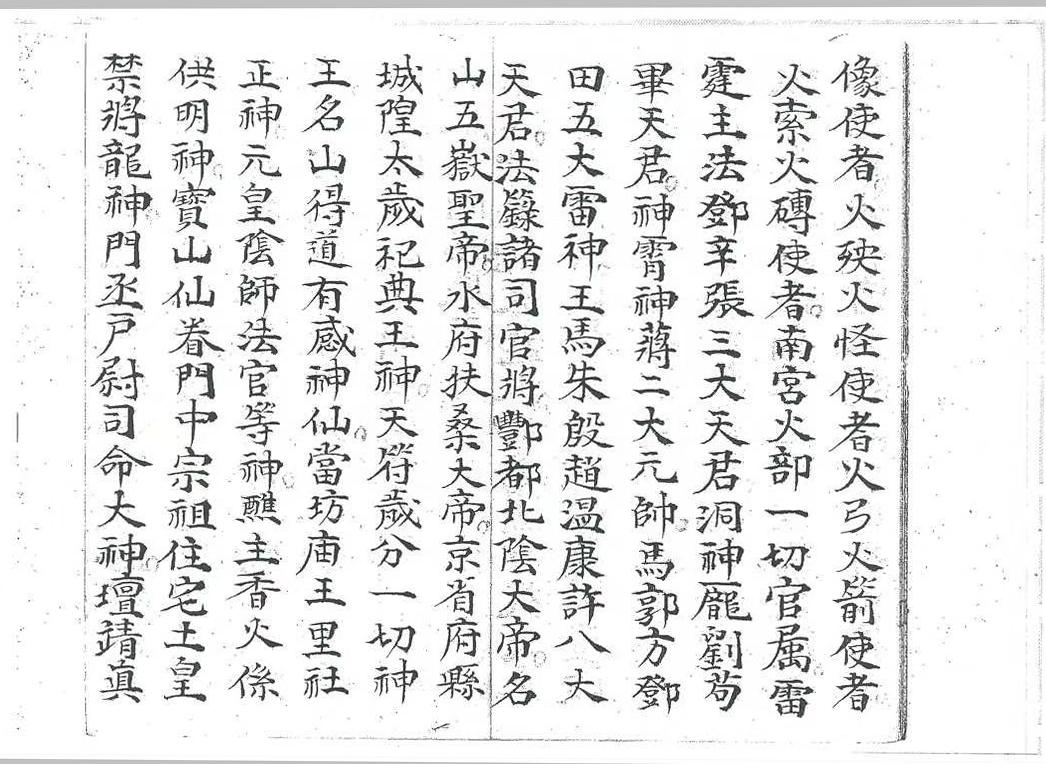 像使者火殃火怪使者火弓火箭使者
火索火磚使者。南宮火部一切官属雷
霆主法鄧辛張三大天君洞神龐劉茍
畢天君。神霄神蔣二大元帥。馬郭方鄧
田五大雷神王馬朱殷趙溫康許八大
天君。法籙諸司官將酆都北陰大帝。名
山五嶽聖帝。水府扶桑大帝。京省府縣
城隍太歲祀典王神。天符歲分一切神
王名山得道有感神仙。當坊庙王里社
正神元皇陰師法官等神。醮主香火係
供明神。寶山仙眷門中宗祖住宅土皇
禁將龍神。門丞戸尉司命大神。壇靖真